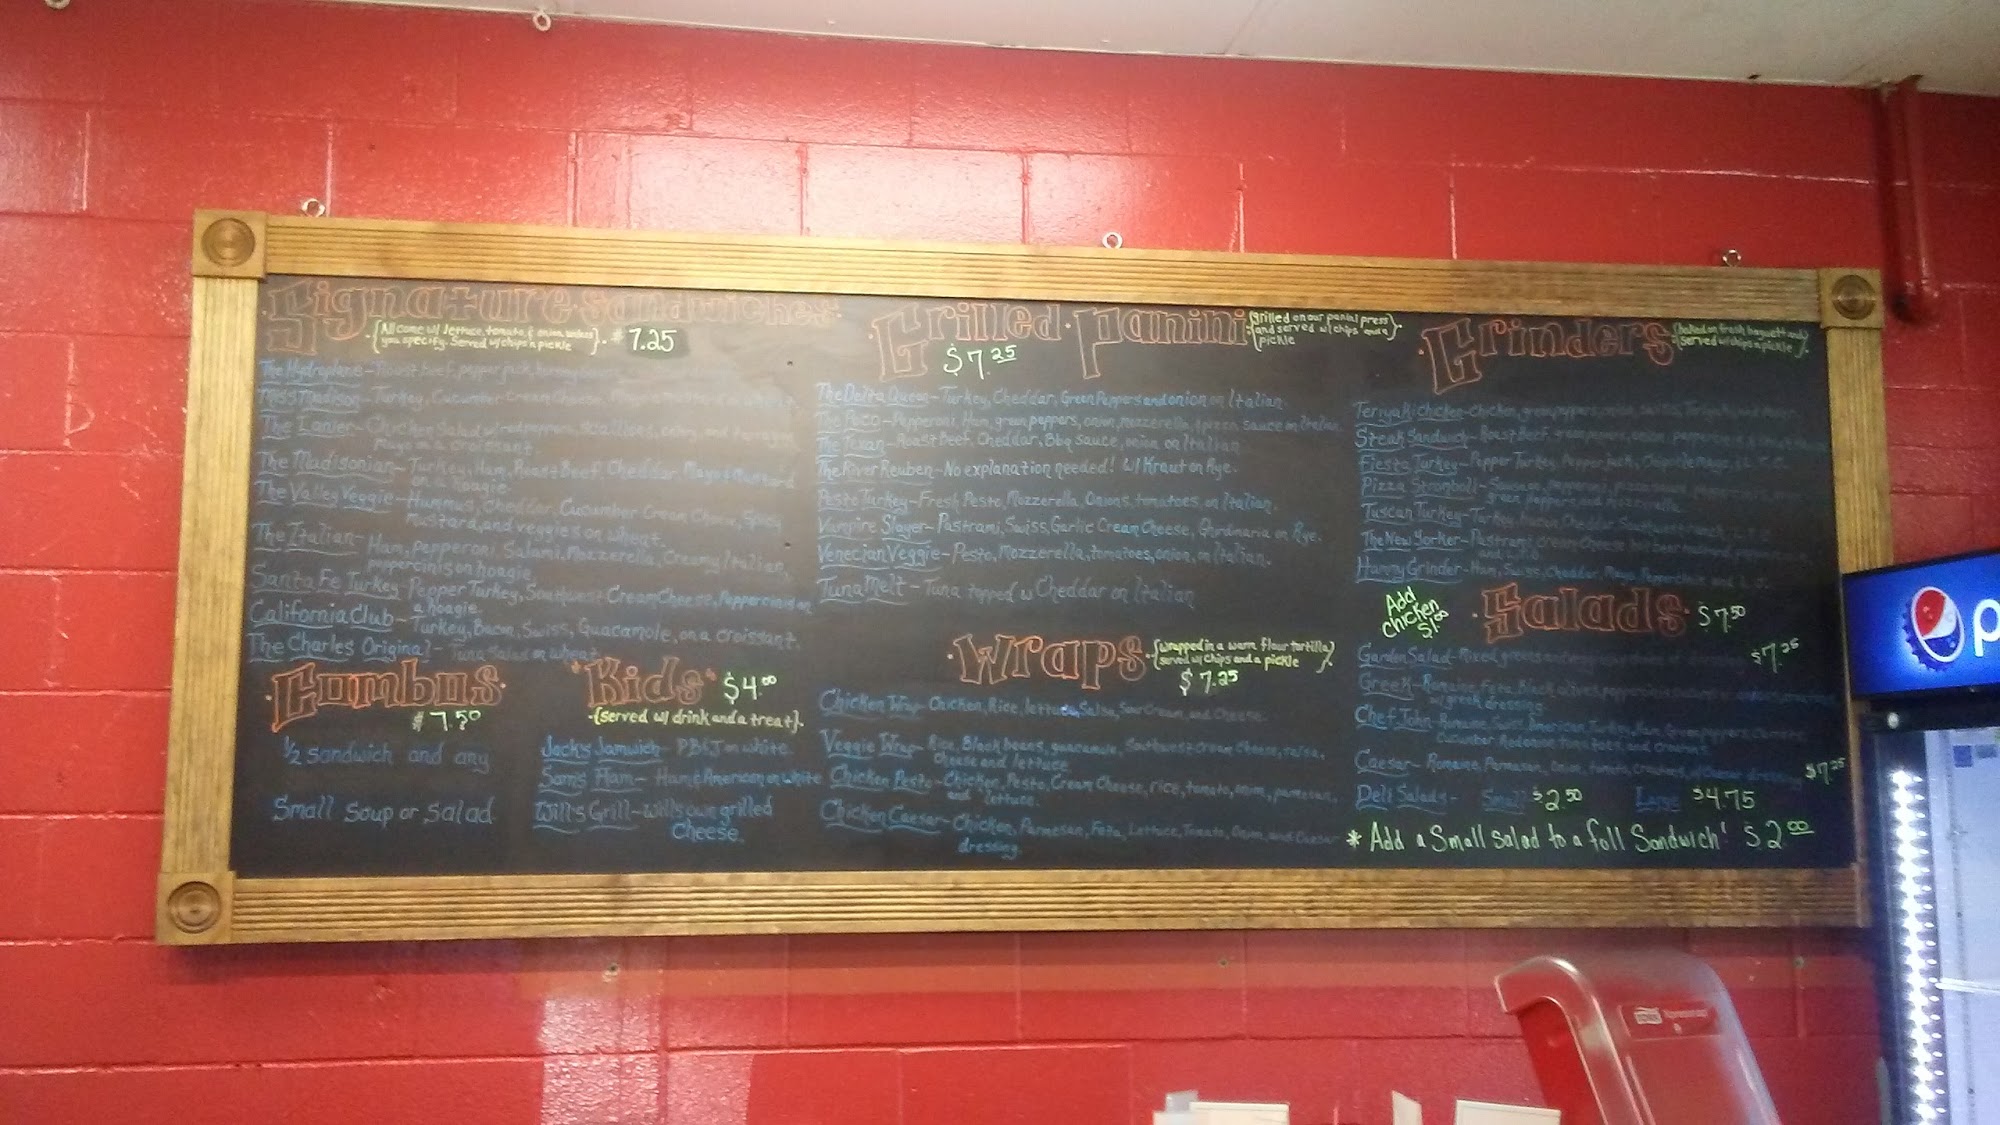 Signature Sandwiches
{All come w/ lettuce, tomato, & onion unless
you specify. Served w/ chips n pickle} $7.25
The Hydroplane - Roast Beef, pepper jack,
Miss Madison - Turkey, Cucumber Cream Cheese, Mayo & mustard on wheat
The Lanier - Chicken Salad w/ red peppers, scallions, celery, and tarragon
Mayo on a croissant
The Madisonian - Turkey, Ham, Roast Beef, Cheddar, Mayo & Mustard
on a hoagie
The Valley Veggie - Hummus, Cheddar, Cucumber Cream Cheese, Spicy
Mustard, and veggies on wheat
The Italian - Ham, pepperoni, Salami, Mozzerella, Creamy Italian,
pepporcinis on hoagie
Santa Fe Turkey - Pepper Turkey, Southwest Cream Cheese, Pepporcinis on
a hoagie
California Club - Turkey, Bacon, Swiss, Guacamole, on a croissant.
The Charles Original - Tuna Salad on wheat
Combos
$7.50
1/2 sandwich and any
Small Soup or Salad
"Kids" $4.00
{served w/ drink and a treat}
Jack's Jamwich - PB&J on white
Sam's Ham - Ham & American on white
Will's Grill - Will's own grilled
Cheese.
Grilled Panini
{grilled on our panini press
and served w/ chips and a
pickle}
$7.25
The Delta Queen - Turkey, Cheddar, Green Peppers and onion on Italian
The Poco - Pepperoni, Ham, green peppers, onion, mozzerella, & pizza sauce on Italian
The Texan - Roast Beef, Cheddar, Bbq Sauce, onion on Italian
The River Reuben - No explanation needed! w/ Kraut on Rye.
Pesto Turkey - Fresh Pesto, Mozzerella, Onions, tomatoes, on Italian.
Vampire Slayer - Pastrami, Swiss, Garlic Cream Cheese, on Rye.
Venecian Veggie - Pesto, Mozzerella, tomatoes, onion, on Italian.
Tuna Melt - Tuna topped w Cheddar on Italian
Wraps
{wrapped in a warm flour tortilla
served w/ chips and a pickle}
$7.25
Chicken Wrap - Chicken, Rice, lettuce, Salsa, Sour Cream, and Cheese.
Veggie Wrap - Rice, Black beans, guacamole, Southwest Cream Cheese, salsa,
cheese and lettuce
Chicken Pesto - Chicken, Pesto, Cream Cheese, rice, tomato, onion, parmesan,
and lettuce.
Chicken Caesar - Chicken, Parmesan, Feta, Lettuce, Tomato, Onion, and Caesar
dressing.
Grinders
{baked on fresh baguett and
served w/ chips n pickle}
Teriyaki chicken - Chicken, green peppers, onion, Swiss, Teriyaki, and Mayo
Steak Sandwich - Roast Beef, green peppers, onion,
Fiesta Turkey - Pepper Turkey, Pepper jack, Chipotle mayo, & L.T.O.
Pizza Stromboli - Sausage, Pepperoni, pizza sauce,
green pepper and mozzarella
Tuscan Turkey - Turkey, Bacon, Cheddar, Southwest ranch,
The New Yorker - Pastrami, Cream Cheese
and L.T.O
Hammy Grinder - Ham, Swiss, Cheddar, Mayo, Pepporcinis and L.T.O.
Add
Chicken
$1.00
Salads $7.50
Garden Salad - Mixed greens and $7.25
Greek - Romaine, Feta, Black olives, pepporcinis
w/ greek dressing
Chef John - Romaine, Swiss, American, Turkey, Ham, Green peppers, Carrots,
Cucumber, tomatoes, and Croutons
Caesar - Romaine, Parmesan, Onion, tomato, Croutons, w/ Caesar dressing $7.25
Deli Salads - Small $2.50 Large $4.75
* Add a Small Salad to a full Sandwich! $2.00